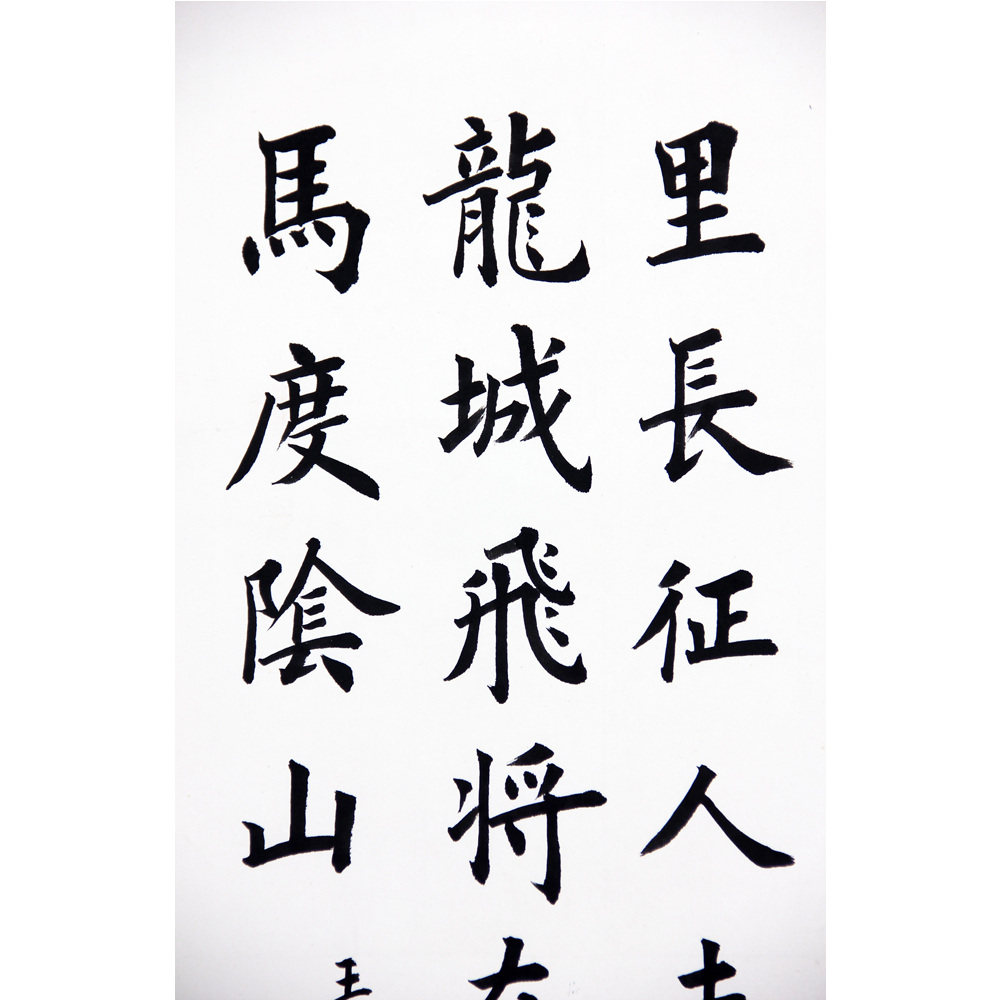 里長征人
龍城飛将
馬度陰山